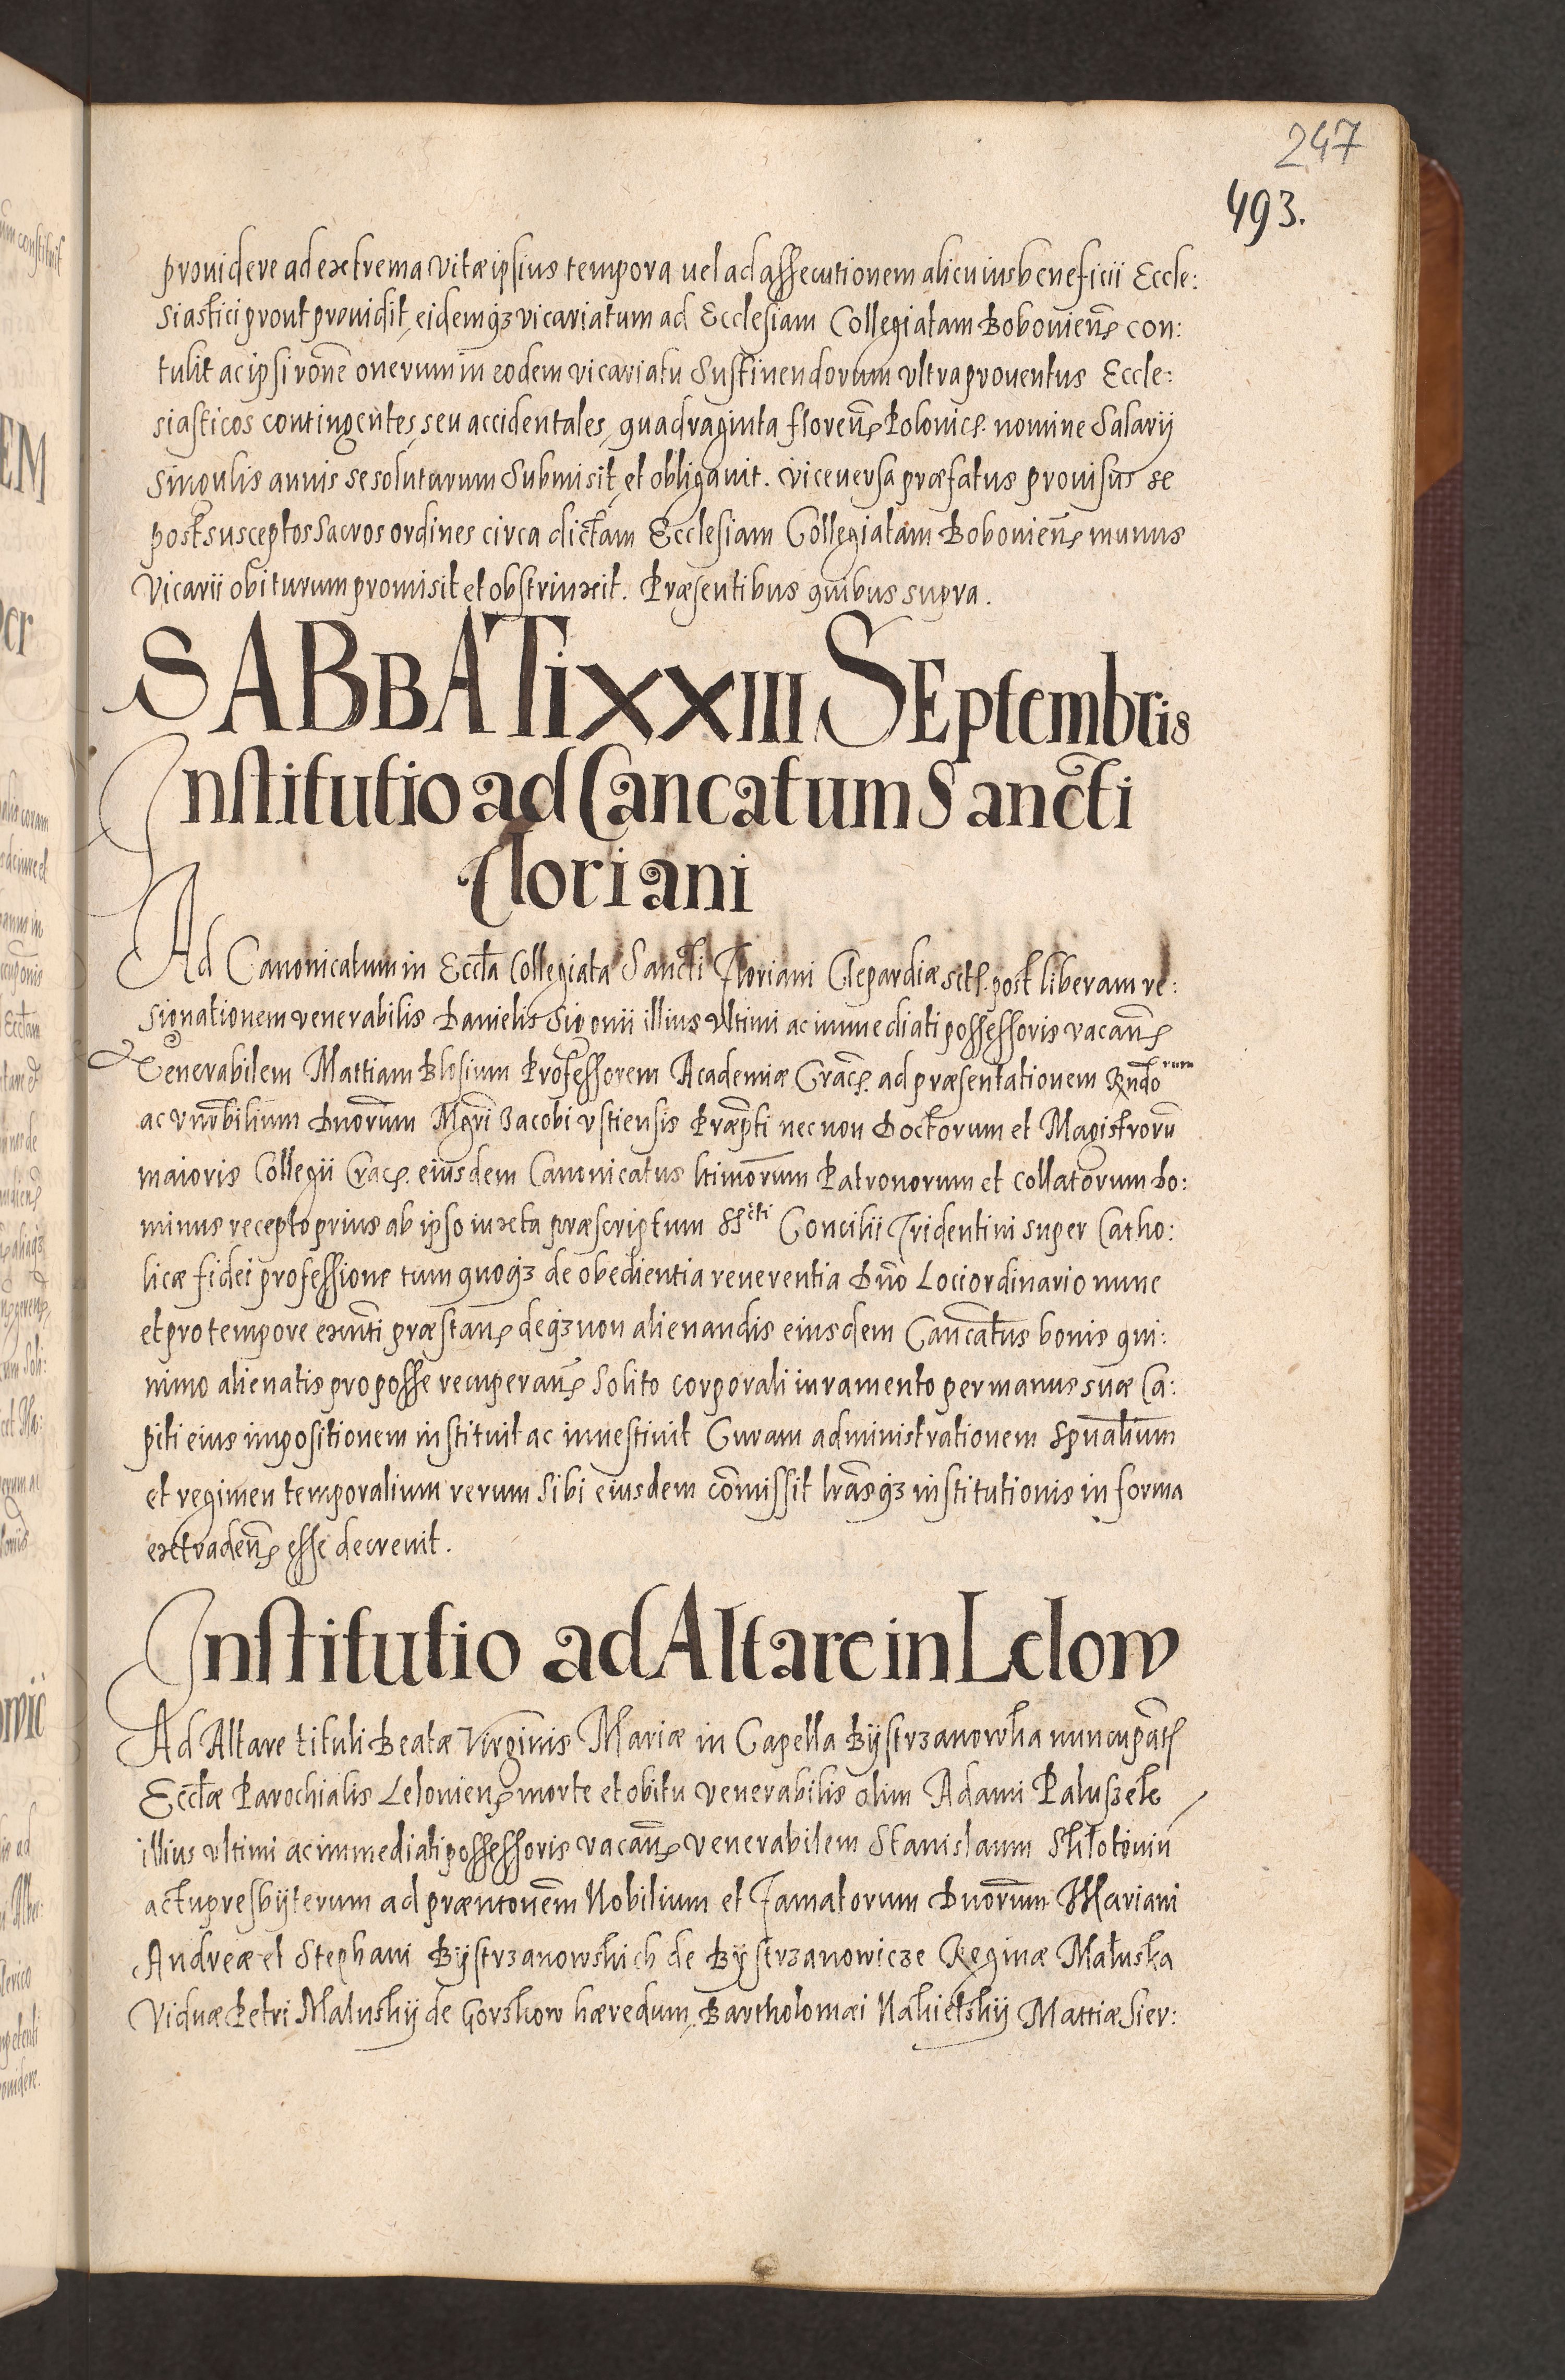 247
493.
prouidere ad extrema vitæ ipsius tempora uel ad assecutionem alicuius beneficii Eccle:
siastici prout prouidit, eidemq₃ vicariatum ad Ecclesiam Collegiatam Bobouien̄ con:
tulit ac ipsi rōne onerum in eodem vicariatu sustinendorum vltra prouentus Eccle:
siasticos contingentes, seu accidentales, quadraginta floren̄ Polonic. nomine Salarij
singulis annis se soluturum submisit, et obligauit. Viceuersa præfatus prouisus se
post susceptos Sacros ordines circa dictam Ecclesiam Collegiatam Bobouien̄ munus
Vicarii obiturum promisit et obstrinxit. Præsentibus quibus supra.
SABBATI XXIII SEptembris
Institutio ad Cancatum Sancti
Floriani
Ad Canonicatum in Eccła Collegiata Sancti Floriani Clepardiæ sit. post liberam re:
signationem venerabilis Danielis Sigonii illius vltimi ac immediati possessoris vacan̄
Venerabilem Mattiam Blosium Professorem Academiæ Crac. ad præsentationem Rndorum
ac vnōbilium Dnorum Mgri Jacobi vstiensis Præpti nec non Doctorum et Magistrorū
maioris Collegii Crac. eiusdem Canonicatus ltimorum Patronorum et collatorum Do:
minus recepto prius ab ipso iuxta præscriptum SScti Concilii Tridentini super Catho:
licæ fidei professione tum quoq₃ de obedientia reuerentia Dno Loci ordinario nunc
et pro tempore exnti præstan̄ deq₃ non alienandis eiusdem Cancatus bonis qui:
nimo alienatis pro posse recuperan̄ solito corporali iuramento per manus suæ Ca:
piti eius impositionem instituit ac inuestiuit Curam administrationem spualium
et regimen temporalium rerum sibi eiusdem cōmissit lrasq₃ institutionis in forma
extraden̄ esse decreuit.
Institutio ad Altare in Lelow
Ad Altare tituli Beatæ Virginis Mariæ in Capella Bijstrzanowska nuncupat
Ecclæ Parochialis Lelouien̄ morte et obitu venerabilis olim Adami Paluszek
illius vltimi ac immediati possessoris vacan̄ venerabilem Stanislaum
actu presbijterum ad præntonem Nobilium et Famatorum Dnorum Mariani
Andreæ et Stephani Bijstrzanowskich de Bijstrzanowicze Reginæ Małuska
Viduæ Petri Maluskij de Gorskow hæredum, Bartholomæi Nakielskij Mattiæ Sier: